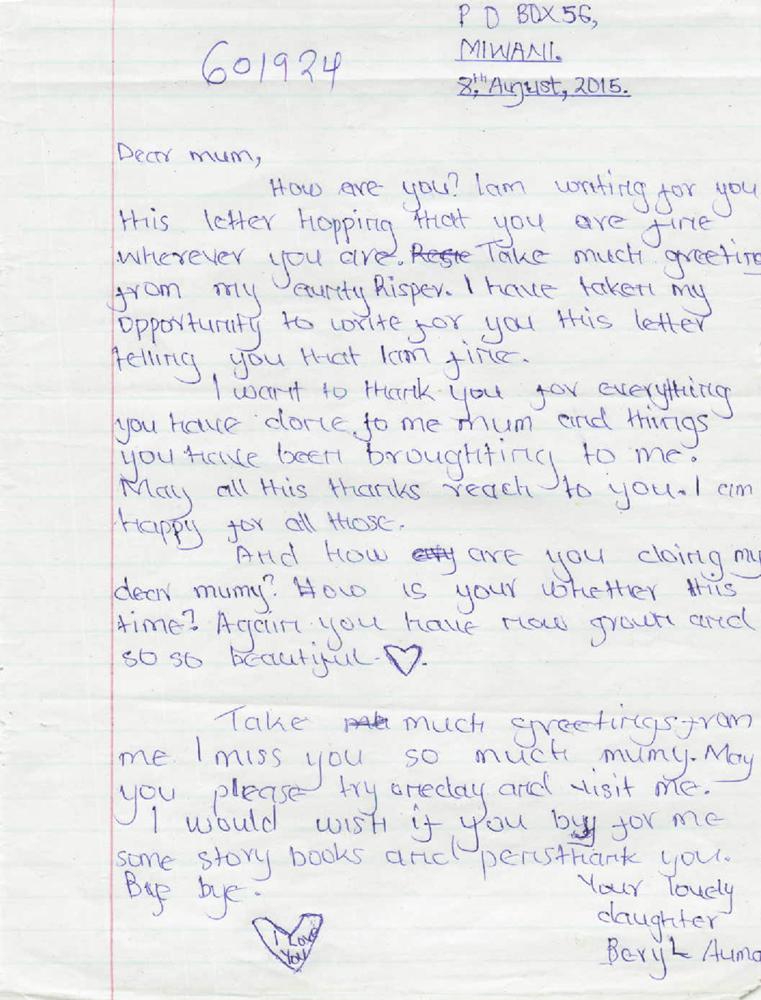 P O BOX 56,
601924
MIWANI.
8th August, 2015.
Dear mum,
How are you? Iam writing for you
this letter hopping that you are fine
wherever you are. Take much greeting
from my aunty Risper. I have taken my
opportunity to write for you this letter
telling you that Iam fine.
I want to thank you for everything
you have done to me mum and things
you have been broughting to me.
May all this thanks reach to you. I am
happy for all those.
And how are you doing my
dear mumy? How is your whether this
time? Again you have now grown and
so so beautiful.
Take much greetings from
me I miss you so much mumy. May
you please try oneday and visit me.
I would wish if you by for me
some story books and pens thank you.
Bye bye.
Your lovely
daughter
Beryl Auma
I Love
You